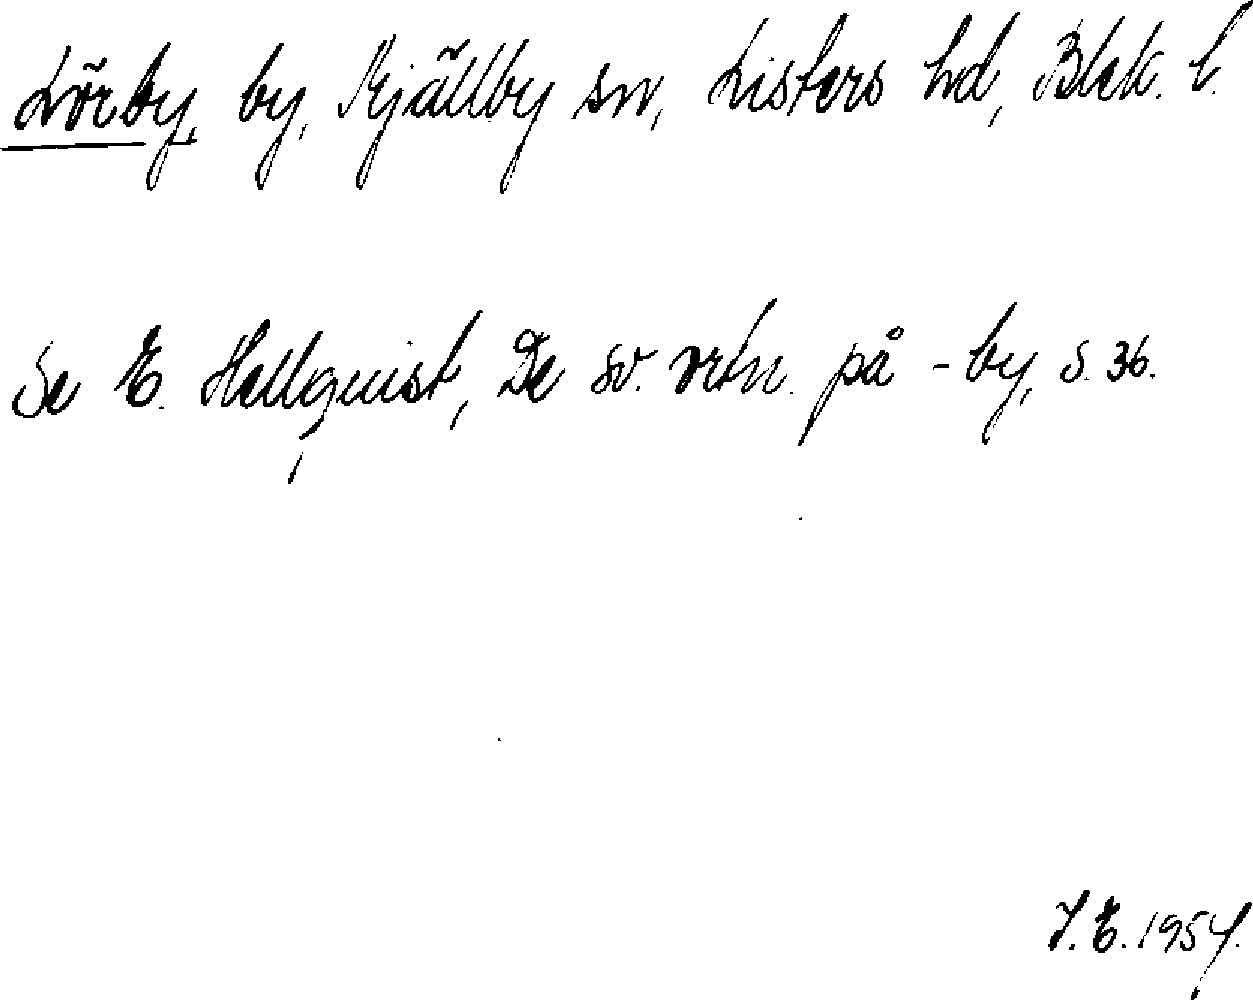 Lörby, by, Mjällby sn, Listers hd, Blek. l.
Se E. Hellquist, De sv. ortn. på -by, s. 36.
J. E. 1954.